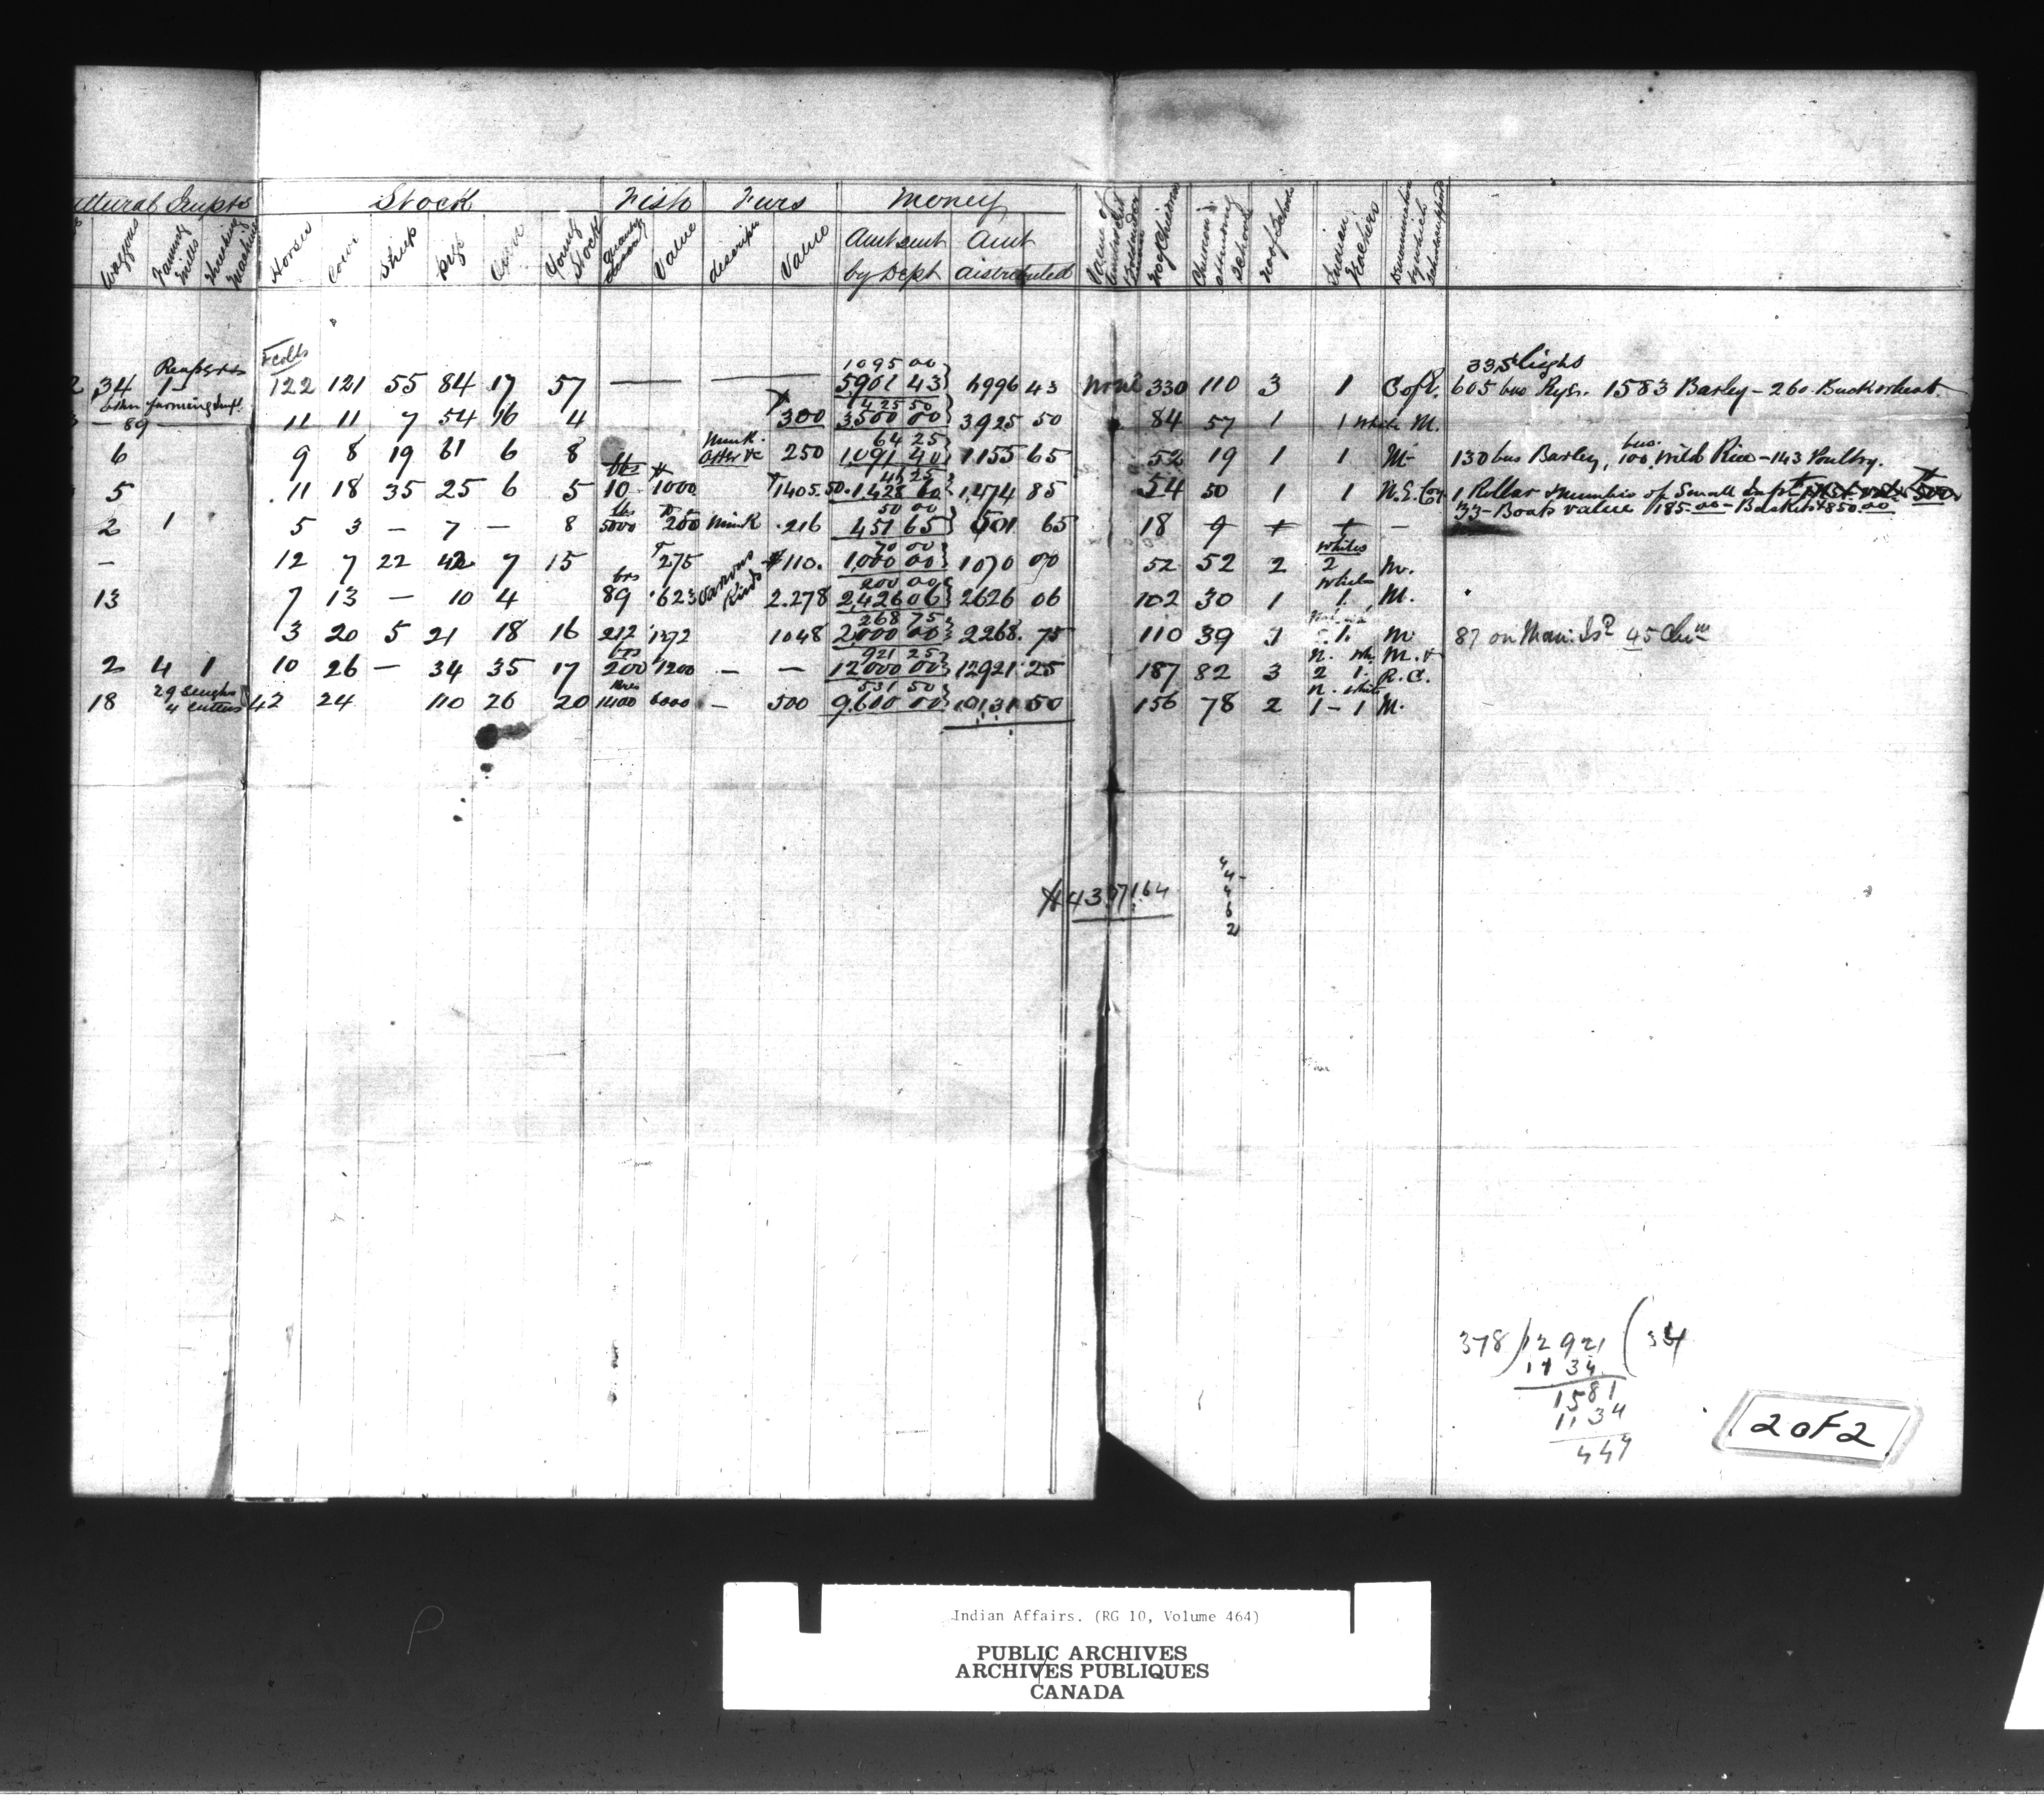 Stock Fish Furs Money
Waggons Fanning Mills Thrashing Machine Horses Cows Sheep pigs Oxen Young Stock Quantity Value descripn Value Amt sent by Dept Amt distributed Value of No of Children attending Schools No of Schools Indian Teachers Denomination by which School supported
F colts 1095 00 33 Sleighs
34 1 122 121 55 84 17 57 — — 5901 43 6996 43 None 330 110 3 1 C of E. 605 bus Rye. 1583 Barley – 260 Buckwheat.
other farming Impt. 425 50
— 89 — 11 11 7 54 16 4 300 3500 00 3925 50 84 57 1 1 White M.
Mink 64 25 bus.
6 9 8 19 61 6 8 Otter &c 250 1091 40 1155 65 52 19 1 1 M 130 bus Barley, 100 Wild Rice – 143 Poultry.
bbs 46 25
5 11 18 35 25 6 5 10 1000 1405.50 1,428 60 1,474 85 54 50 1 1 N.E. Coy. 1 Rollar & number of Small Impts
lbs 50 00 33 – Boats value 185.00 – Baskets 850.00
2 1 5 3 — 7 — 8 5000 250 Mink 216 451 65 501 65 18 9 + + —
70 00 Whites
– 12 7 22 42 7 15 275 Various Kinds 110. 1,000 00 1070 00 52 52 2 2 M.
brs 200 00 White
13 7 13 — 10 4 89 623 2.278 2,426 06 2626 06 102 30 1 1 M.
268 75
3 20 5 21 18 16 212 1372 1048 2,000 00 2268.75 110 39 1 1. M 87 on Mani. Isd 45 Chn
brs 921 25 n. wh. M. &
2 4 1 10 26 — 34 35 17 200 1200 — — 12000 00 12921 25 187 82 3 2 1. R.C.
29 Sleighs brs 531 50 n. white
18 4 cutters 42 24 110 26 20 1400 6000 — 500 9,600 00 10131 50 156 78 2 1 – 1 M.
43071.64
4
4
6
2
378 ) 12 921 ( 34
11 34
1581
1134
447
2 OF 2
Indian Affairs. (RG 10, Volume 464)
PUBLIC ARCHIVES
ARCHIVES PUBLIQUES
CANADA